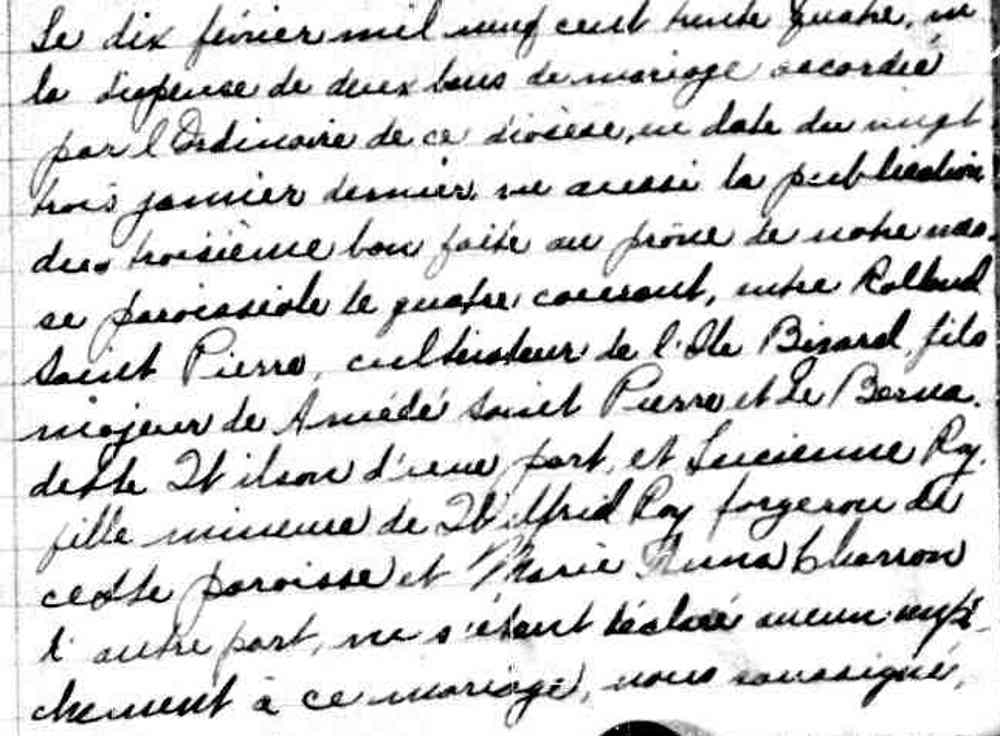 Le dix février mil neuf cent trente quatre, vu
la dispense de deux bans de mariage accordée
par l'Ordinaire de ce diocèse, en date du vingt
trois janvier dernier, vu aussi la publication
du troisième ban faite au prône de notre mes-
se paroissiale le quatre courant, entre Rolland
Saint Pierre, cultivateur de l'Ile Bizard, fils
majeur de Amédé Saint Pierre et de Berna-
dette Wilson d'une part, et Lucienne Roy,
fille mineure de Wilfrid Roy forgeron de
cette paroisse et Marie Anna Charron
d'autre part, ne s'étant déclaré aucun empê-
chement à ce mariage, nous soussigné,